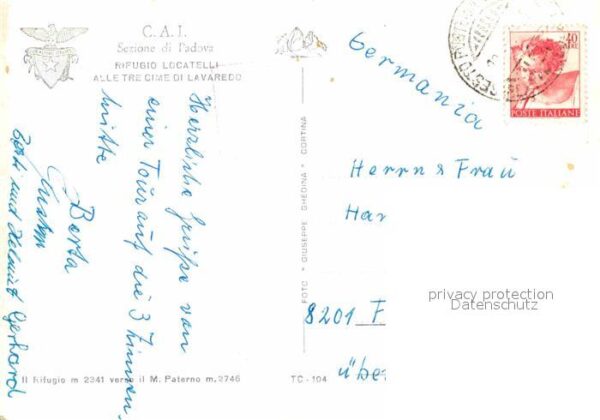 C. A. I.
Sezione di Padova
RIFUGIO LOCATELLI
ALLE TRE CIME DI LAVAREDO
Herzliche Grüße von
einer Tour auf die 3 Zinnen,
hütte
Berta
Gerti und Helmut Gerhard
Il Rifugio m 2341 verso il M. Paterno m. 2746
FOTO * GIUSEPPE GHEDINA * CORTINA
TC - 104
40
LIRE
POSTE ITALIANE
Germania
Herrn & Frau
Har
8201 F
über
privacy protection
Datenschutz